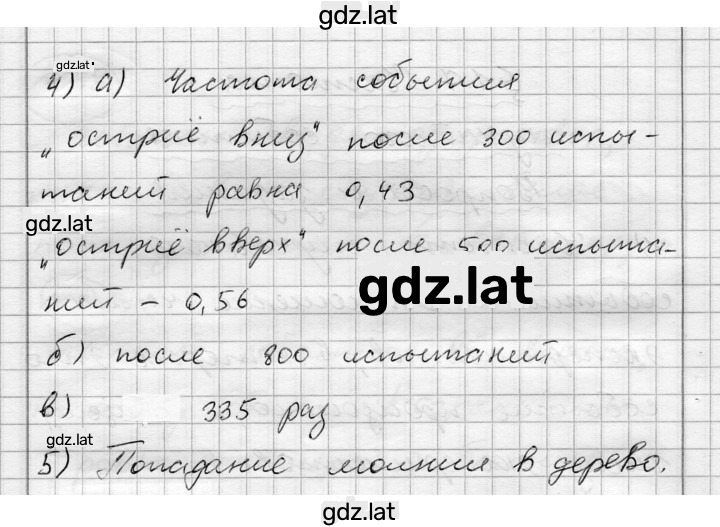 gdz.lat
gdz.lat
4) а) Частота события
„остриё вниз" после 300 испы-
таний равна 0,43
gdz.lat
„остриё вверх" после 500 испыта-
ний – 0,56
gdz.lat
б) после 800 испытаний
в) 335 раз
gdz.lat
5) Попадание молнии в дерево.
gdz.lat